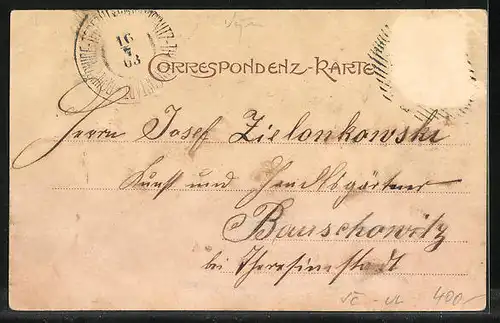 16
V
03
CORRESPONDENZ-KARTE
Herrn Josef Zielonkowski
Kunst und Handelsgärtner
Bauschowitz
bei Theresienstadt
400.-